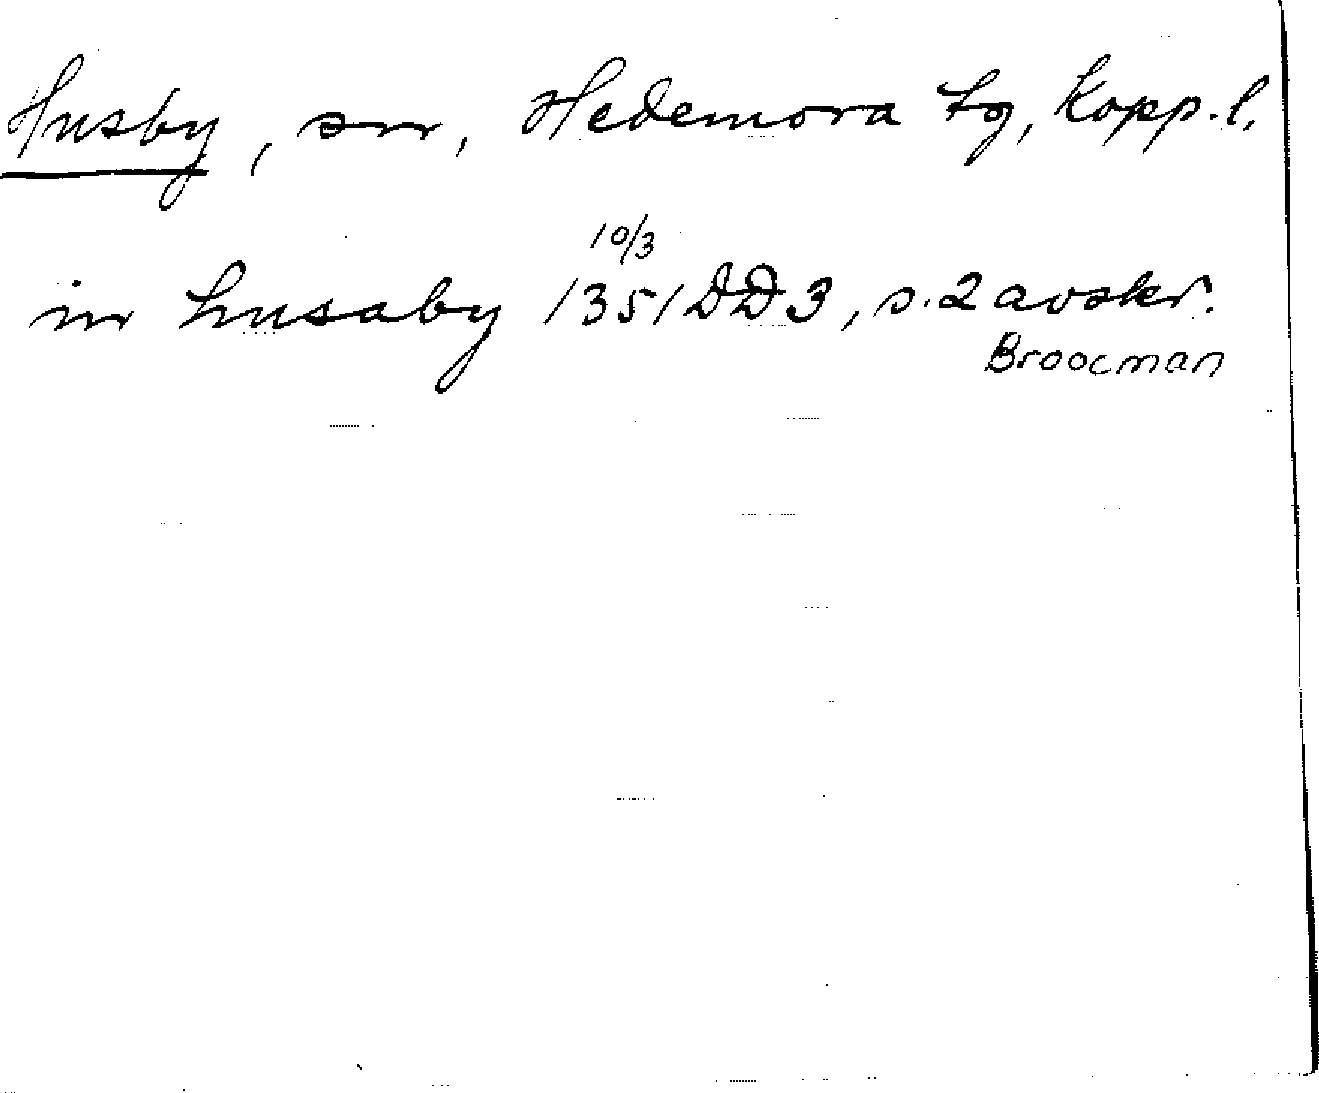 Husby, sn, Hedemora tg, Kopp. l.
10/3
in husaby 1351 DD 3, s. 2 avskr.
Broocman